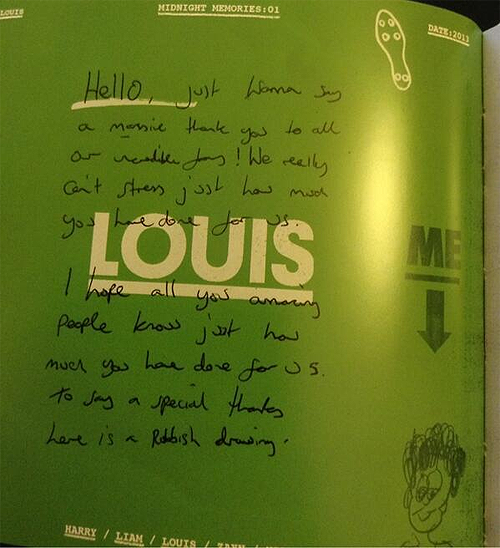 LOUIS
MIDNIGHT MEMORIES:01
DATE:2013
Hello, just wanna say
a massive thank you to all
our incredible fans! We really
can't stress just how much
you have done for us.
LOUIS
ME
I hope all you amazing
people know just how
much you have done for us.
To say a special thanks
here is a Rubbish drawing.
HARRY / LIAM / LOUIS / ZAYN /